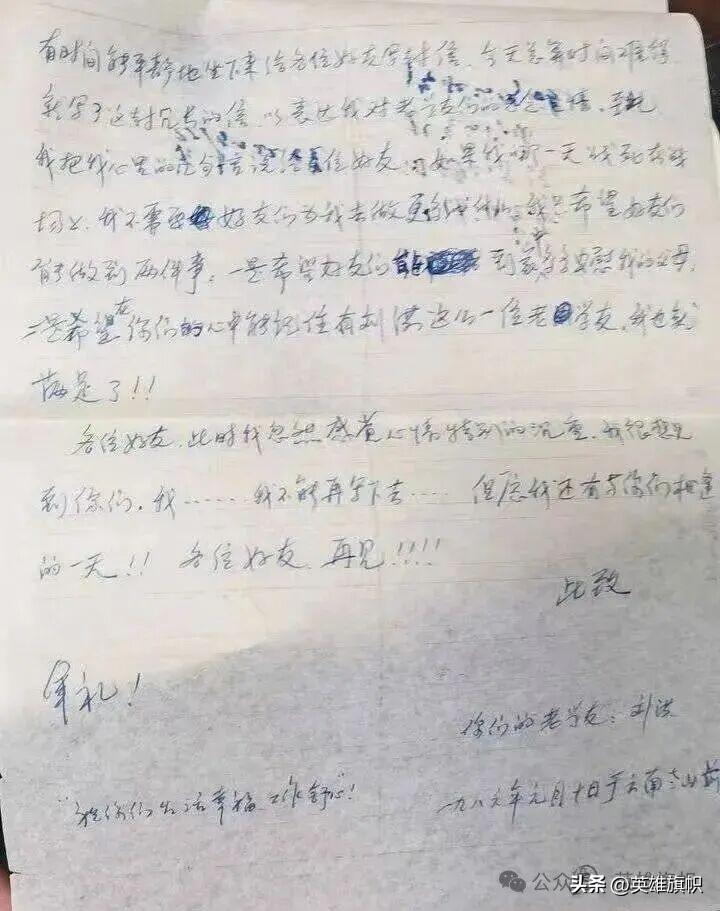 有时间能平静地坐下来给各位好友写封信,今天总算时间难得
就写了这封冗长的信,以表达我对老学友们的 情,至此
我把我心里的 句话说给 位好友,如果我哪一天战死在战
场上,我不需要 好友们为我去做更多 ,我只希望好友们
能做到两件事,一是希望好友们能 到家乡去安慰我的父母,
二是希望在你们的心中能记住有刘洪这么一位老学友,我也就
满足了!!
各位好友,此时我忽然感觉心情特别的沉重,我很想见
到你们,我……我不能再写下去…… 但愿我还有与你们相逢
的一天!! 各位好友,再见!!!!
此致
军礼!
你们的老学友:刘洪
"祝你们生活幸福 工作舒心!
一九八六年元月十日于云南老山前
公众号 英雄旗帜
头条 @英雄旗帜